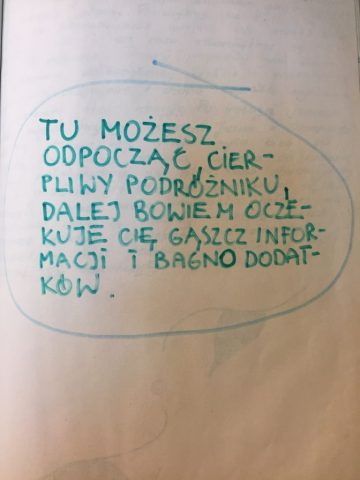 TU MOŻESZ
ODPOCZĄĆ, CIER-
PLIWY PODRÓŻNIKU,
DALEJ BOWIEM OCZE-
KUJE CIĘ GĄSZCZ INFOR-
MACJI I BAGNO DODAT-
KÓW.